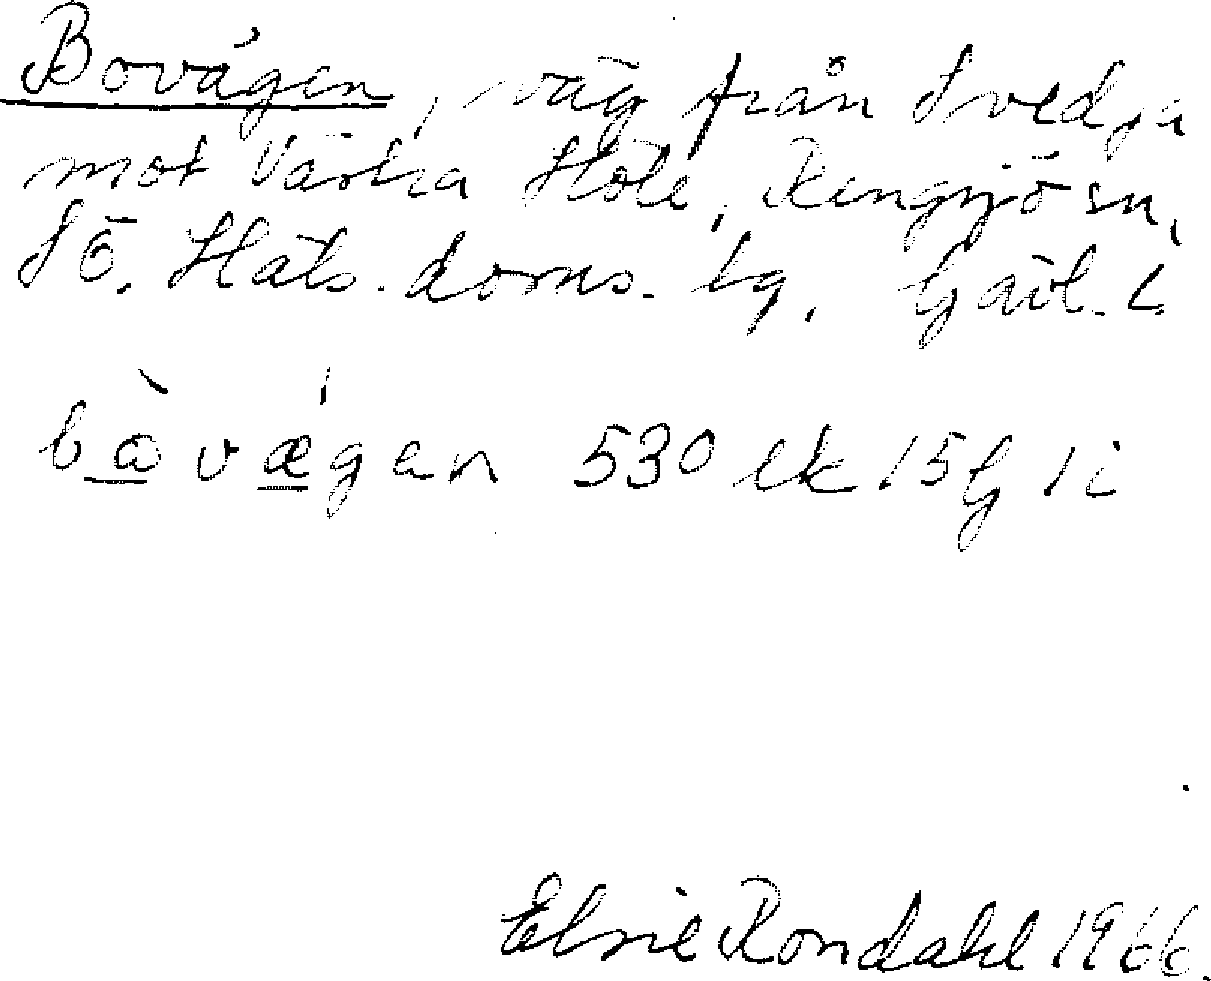 Bovägen, väg från Svedja
mot Västra Höle, Rengsjö sn,
SÖ. Häls. doms. tg. Gävl. l.
bòvǽgen 530 ek 15G 1i
Elsie Rondahl 1966.